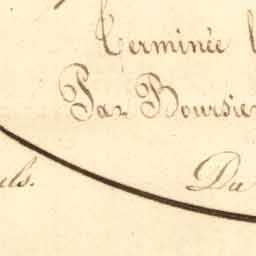 Terminée
Par Boursier
els. Du